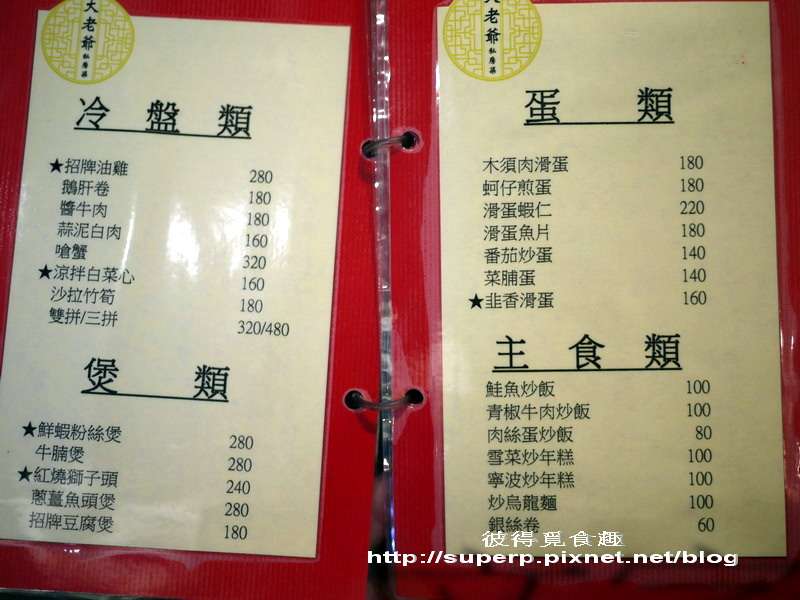 大老爺私房菜
冷盤類
★招牌油雞 280
鵝肝卷 180
醬牛肉 180
蒜泥白肉 160
嗆蟹 320
★涼拌白菜心 160
沙拉竹筍 180
雙拼/三拼 320/480
煲類
★鮮蝦粉絲煲 280
牛腩煲 280
★紅燒獅子頭 240
蔥薑魚頭煲 280
招牌豆腐煲 180
大老爺私房菜
蛋類
木須肉滑蛋 180
蚵仔煎蛋 180
滑蛋蝦仁 220
滑蛋魚片 180
番茄炒蛋 140
菜脯蛋 140
★韭香滑蛋 160
主食類
鮭魚炒飯 100
青椒牛肉炒飯 100
肉絲蛋炒飯 80
雪菜炒年糕 100
寧波炒年糕 100
炒烏龍麵 100
銀絲卷 60
彼得覓食趣
http://superp.pixnet.net/blog